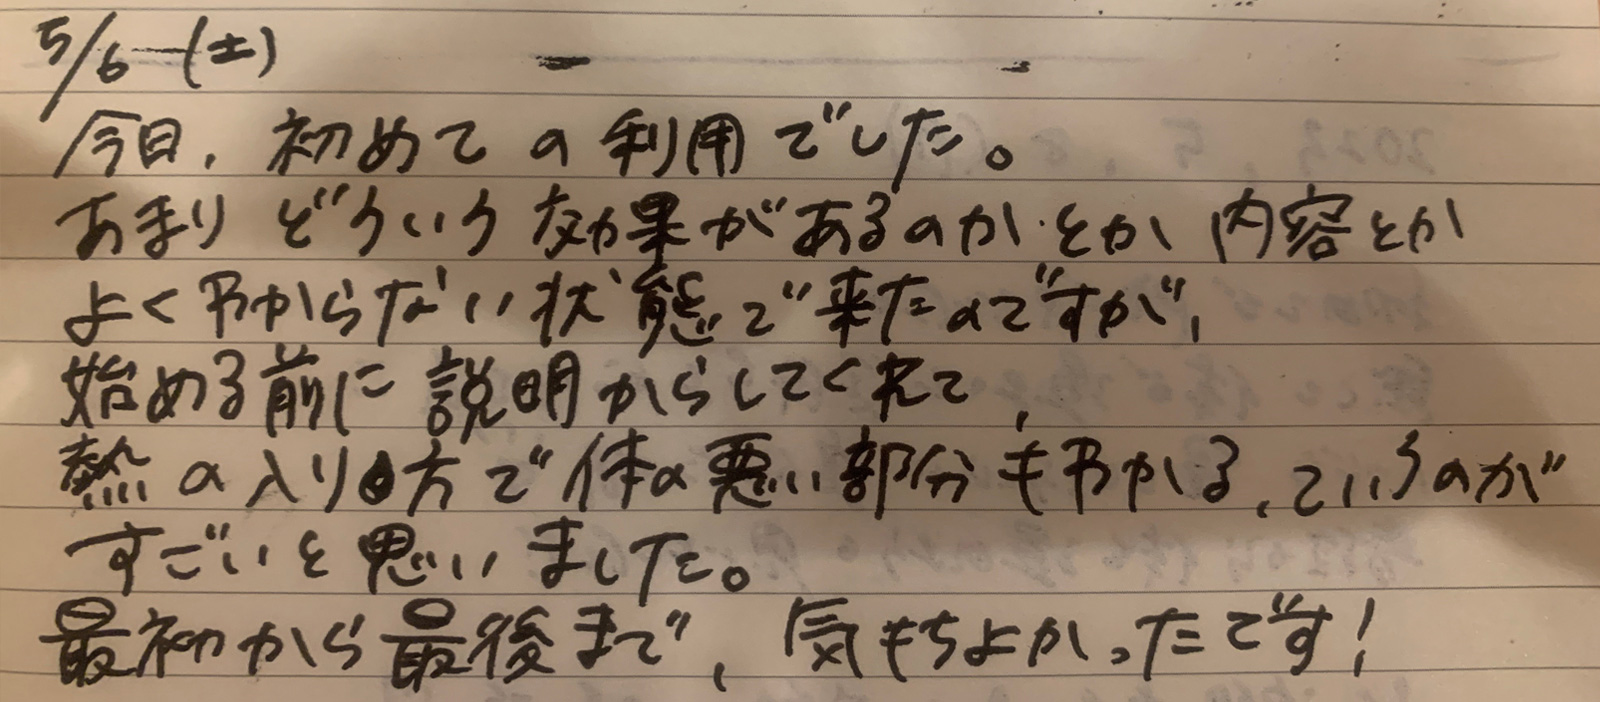 5/6 (土)
今日、初めての利用でした。
あまりどういう効果があるのか、とか内容とか
よくわからない状態で来たのですが、
始める前に説明からしてくれて、
熱の入り方で体の悪い部分もわかる、というのが
すごいと思いました。
最初から最後まで、気もちよかったです!